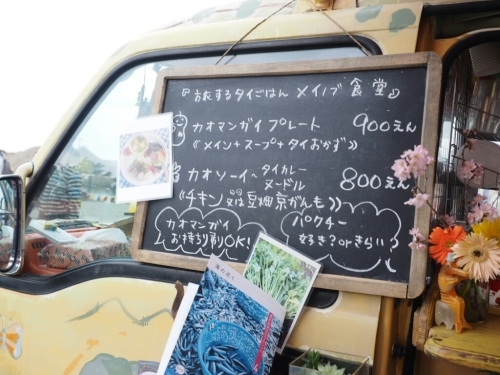 『おむするタイごはん メイノブ 食堂』
カオマンガイプレート 900えん
《メイン+スープ+タイおかず》
カオソーイ〜 タイカレー
ヌードル 800えん
《チキン 又は 豆畑京がんも》
カオマンガイ
お持ち帰りOK!
パクチー
好き?orきらい?